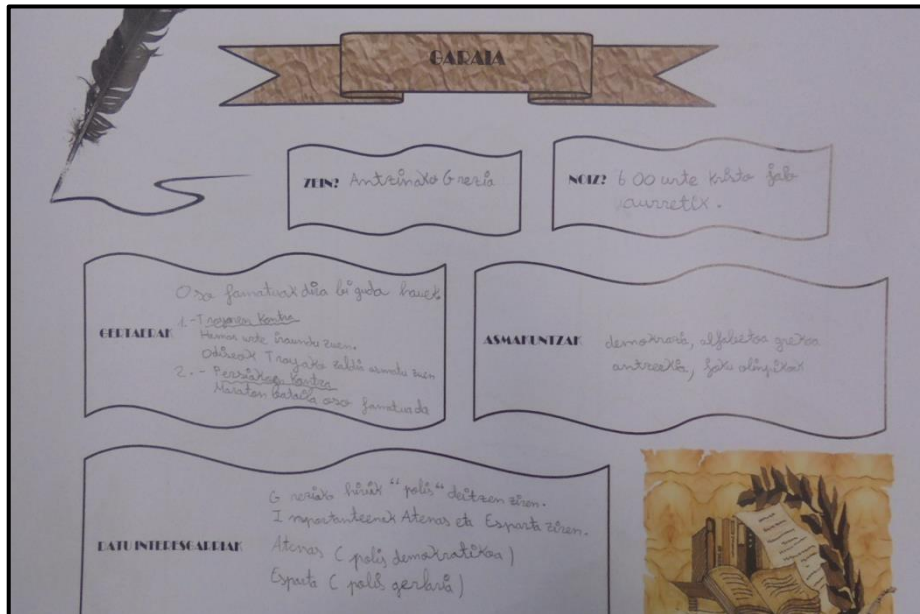 GARAIA
ZEIN? Antzinako Grezia
NOIZ? 600 urte kristo jaio
aurretik.
Oso famatuak dira bi guda hauek
1.-Troyaren kontra
Hamar urte iraundu zuen.
Odiseok Troyako zaldia asmatu zuen
2.- Persiakoen kontra
Maraton batalla oso famatua da
GERTAERAK
ASMAKUNTZAK demokrazia, alfabetoa grekoa
antzerkia, joku olinpikoak
Greziako hiriak "polis" deitzen ziren.
Inportanteenak Atenas eta Esparta ziren.
DATU INTERESGARRIAK
Atenas (polis demokratikoa)
Esparta (polis gerlaria)